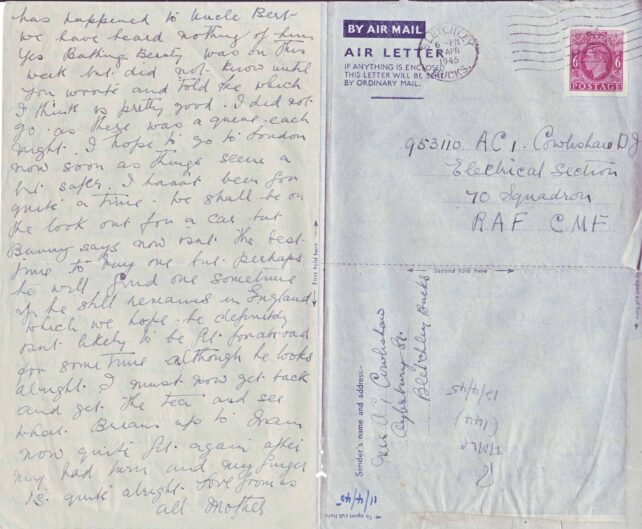 has happened to Uncle Bert
we have heard nothing of him
Yes Bathing Beauty was on this
week but did not know until
you wrote and told me which
I think is pretty good. I did not
go as there was a queue each
night. I hope to go to London
now soon as things seem a
bit safer. I hasnt been for
quite a time. We shall be on
the look out for a car but
Bunny says now isnt the best
time to buy one but perhaps
he will find one sometime
if he still remains in England
which we hope. he definitely
isnt likely to be fit for abroad
for some time although he looks
alright. I must now get back
and get the tea and see
what Brians up to. I am
now quite fit again after
my bad turn and my finger
is quite alright. Love from us
all Mother
First fold here
BY AIR MAIL
AIR LETTER
IF ANYTHING IS ENCLOSED
THIS LETTER WILL BE SENT
BY ORDINARY MAIL.
BLETCHLEY
6 - PM
APR
1945
BUCKS.
6 6
POSTAGE
953110 AC1. Cowlishaw D J
Electrical Section
70 Squadron
RAF CMF
Second fold here
To open cut here
Sender's name and address:-
Mrs A G Cowlishaw
St.
Bletchley Bucks
R
(144)
15/4/45
11/4/45
To open cut here